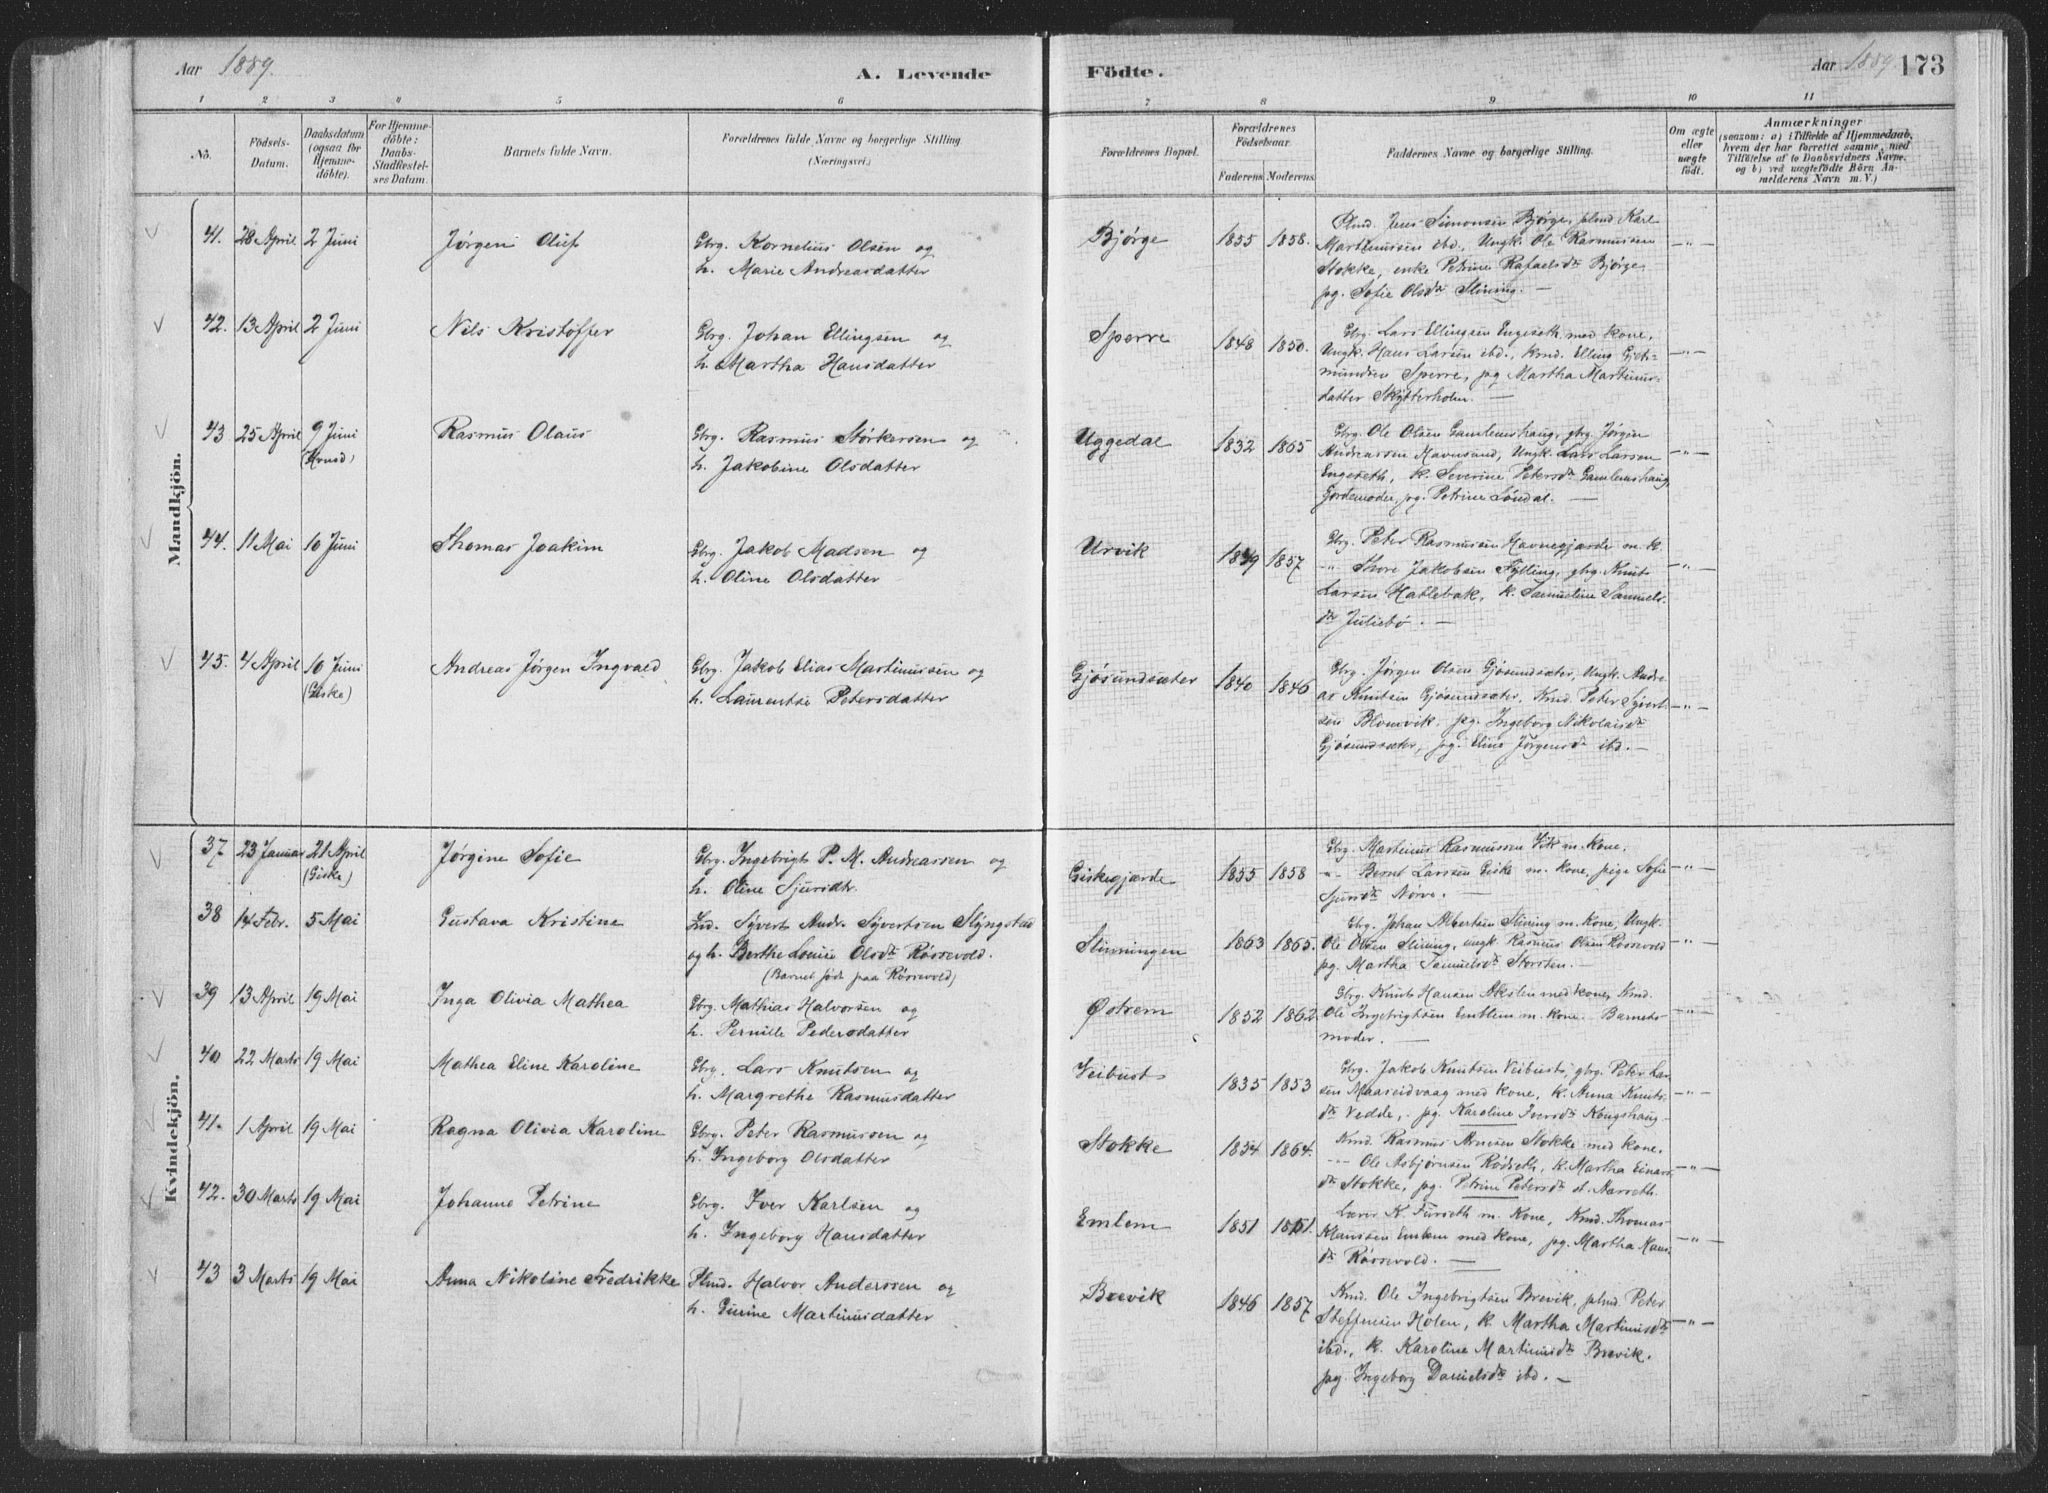 Aar 1889.
A. Levende
Födte.
Aar 1889
173
1 2 3 4 5 6 7 8 9 10 11
No.
Födsels-Datum.
Daabsdatum (ogsaa for Hjemme-döbte).
For Hjemme-döbte: Daabs-Stadfæstel-ses Datum.
Barnets fulde Navn.
Forældrenes fulde Navne og borgerlige Stilling (Næringsvei.)
Forældrenes Bopæl.
Forældrenes Födselsaar.
Faderens Moderens
Faddernes Navne og borgerlige Stilling.
Om ægte eller uægte födt.
Anmærkninger
(saasom: a) i Tilfælde af Hjemmedaab, hvem der har forrettet samme, med Tilföielse af to Daabsvidners Navne. og b) ved uægtefödte Börn An-melderens Navn m. V.)
Mandkjön.
41. 28 April 2 Juni Jørgen Oluf Gbrg. Kornelius Olsen og
h. Marie Andreasdatter
Bjørge 1855 1858. Plmd. Jens Simonsen Bjørge, plmd Karl
Marthinussen ibd., Ungk. Ole Rasmussen -"-
Stokke, enke Petrine Rafaelsdtr Bjørge,
pg. Sofie Olsdtr Slining. —
42. 13 April 2 Juni Nils Kristoffer Gbrg. Johan Ellingsen og
h. Martha Hansdatter
Sperre 1848 1850. Gbrg. Lars Ellingsen Engeseth med Kone,
Ungk. Hans Larsen ibd., Kmd. Elling Gjert- -"-
mundsen Sperre, pg Martha Martinus-
datter Skytterholm. —
43 25 April 9 Juni Rasmus Olaus Gbrg. Rasmus Størkersen og
(Hvnsd)
h. Jakobine Olsdatter
Uggedal 1832 1865 Gbrg. Ole Olsen Gamlemshaug, gbrg. Jørgen
Andreassen Havnsund, Ungk. Lars Larsen -"-
Engeseth, k. Severine Petersdtr Gamlemshaug,
Gjordemoder, pg. Petrine Løndal. —
44. 11 Mai 10 Juni Thomas Joakim Gbrg. Jakob Madsen og
h. Oline Olsdatter
Urvik 1857 Gbrg. Peter Rasmussen Havnegjærde m. k.
-"- Thore Jakobsen Fylling, gbrg. Knut -"-
Larsen Hatlebak, k. Samueline Samuels-
dtr Juliebø. —
45. 4 April 10 Juni Andreas Jørgen Ingvald Gbrg. Jakob Elias Martinussen og
(Giske)
h. Laurentse Petersdatter
Gjøsundsæter 1840 1846 Gbrg. Jørgen Olsen Gjøsundsæter, Ungk. Andre-
as Knutsen Gjøsundsæter, Kmd. Peter Syvert- -"-
sen Blomvik, pg. Ingeborg Nikolaisdtr
Gjøsundsæter, pg. Eline Jørgensdtr ibd. —
Kvindekjön.
37 23 Januar 21 April Jørgine Sofie Gbrg. Ingebrigt P. M. Andreassen og
(Giske)
h. Oline Sjursdtr.
Giskegjærde 1855 1858 Gbrg. Martinus Rasmussen Vik m. Kone.
-"- Bernt Larsen Giske m. Kone, pige Sofie -"-
Sjursdtr Nørve. —
38 14 Febr. 5 Mai Gustava Kristine Ind. Syvert Andr. Syvertsen Slyngstad
og h. Berthe Louise Olsdtr Røssevold.
(Barnet født paa Røssevold)
Slinningen 1863 1865. Gbrg. Johan Albertsen Slining m. Kone, Ungk.
Ole Olsen Slining, ungk. Rasmus Olsen Røssevold -"-
pg. Martha Samuelsdtr Storsten. —
39 13 April 19 Mai Inga Olivia Mathea Gbrg. Mathias Halvorsen og
h. Pernille Pedersdatter
Østrem 1852 1862 Gbrg. Knut Hansen Akslen med Kone, Kmd.
Ole Ingebrigtsen Emblem m. Kone. Barnets- -"-
moder. —
40 22 Marts 19 Mai Mathea Eline Karoline Gbrg. Lars Knutsen og
h. Margrethe Rasmusdatter
Veibust 1835 1853 Gbrg. Jakob Knutsen Veibust, gbrg. Peter Lar-
sen Maaseidvaag med Kone, k. Anna Knuts- -"-
dtr Vedde, pg. Karoline Iversdtr Kongshaug —
41. 1 April 19 Mai Ragna Olivia Karoline Gbrg. Peter Rasmussen og
h. Ingeborg Olsdatter
Stokke 1834 1864. Kmd. Rasmus Arnesen Stokke med Kone.
-"- Ole Asbjørnsen Rødseth, k. Martha Einars- -"-
dtr Stokke, pg. Petrine Petersdtr st. Aarseth.
42. 30 Marts 19 Mai Johanne Petrine Gbrg. Iver Karlsen og
h. Ingeborg Hansdatter
Emlem 1851 Lærer K. Furseth m. Kone, Kmd. Thomas
Klaussen Emlem med Kone, pg. Martha Hans- -"-
dtr Røssevold. —
43 3 Marts 19 Mai Anna Nikoline Fredrikke Plmd. Halvor Anderssen og
h. Gurine Martinusdatter
Brevik 1846 1857 Kmd. Ole Ingebrigtsen Brevik, plmd. Peter
Steffensen Holen, k. Martha Martinusdtr -"-
ibd., k. Karoline Martinusdtr Brevik.
pg. Ingeborg Danielsdtr ibd. —